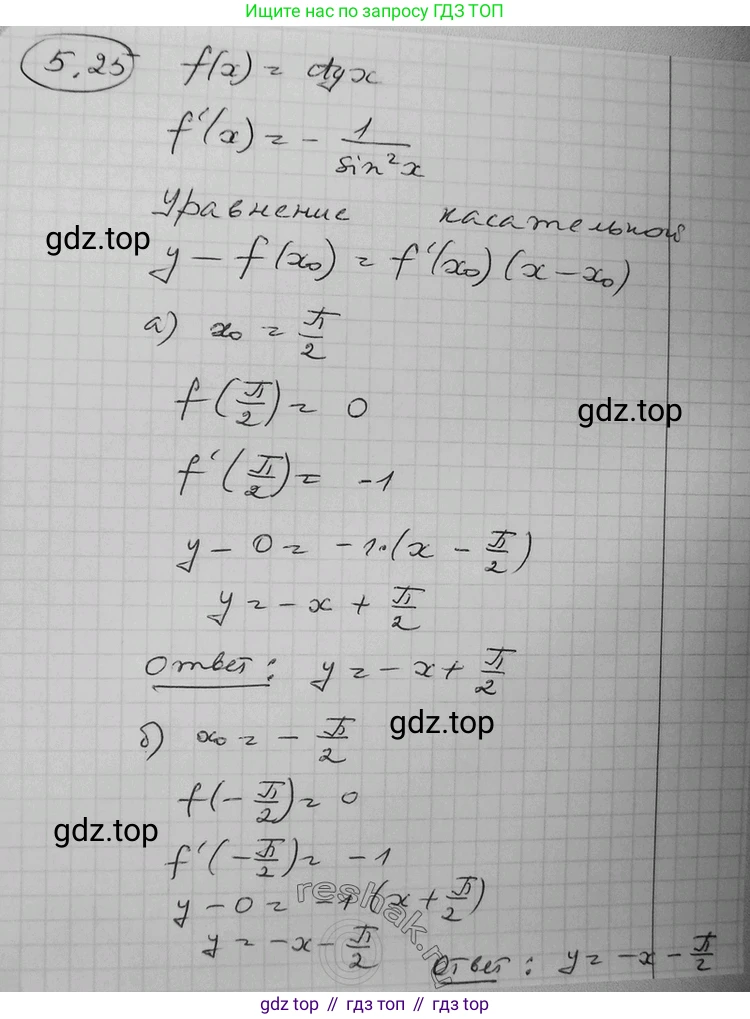 Ищите нас по запросу ГДЗ ТОП
5.25 f(x) = ctgx
f'(x) = - 1/sin²x
Уравнение касательной
gdz.top
y - f(x₀) = f'(x₀)(x - x₀)
а) x₀ = π/2
f(π/2) = 0
gdz.top
f'(π/2) = -1
y - 0 = -1·(x - π/2)
y = -x + π/2
Ответ: y = -x + π/2
б) x₀ = - π/2
gdz.top
f(-π/2) = 0
gdz.top
f'(-π/2) = -1
y - 0 = -1(x + π/2)
reshak.ru
y = -x - π/2
Ответ: y = -x - π/2
gdz top // гдз топ // gdz top